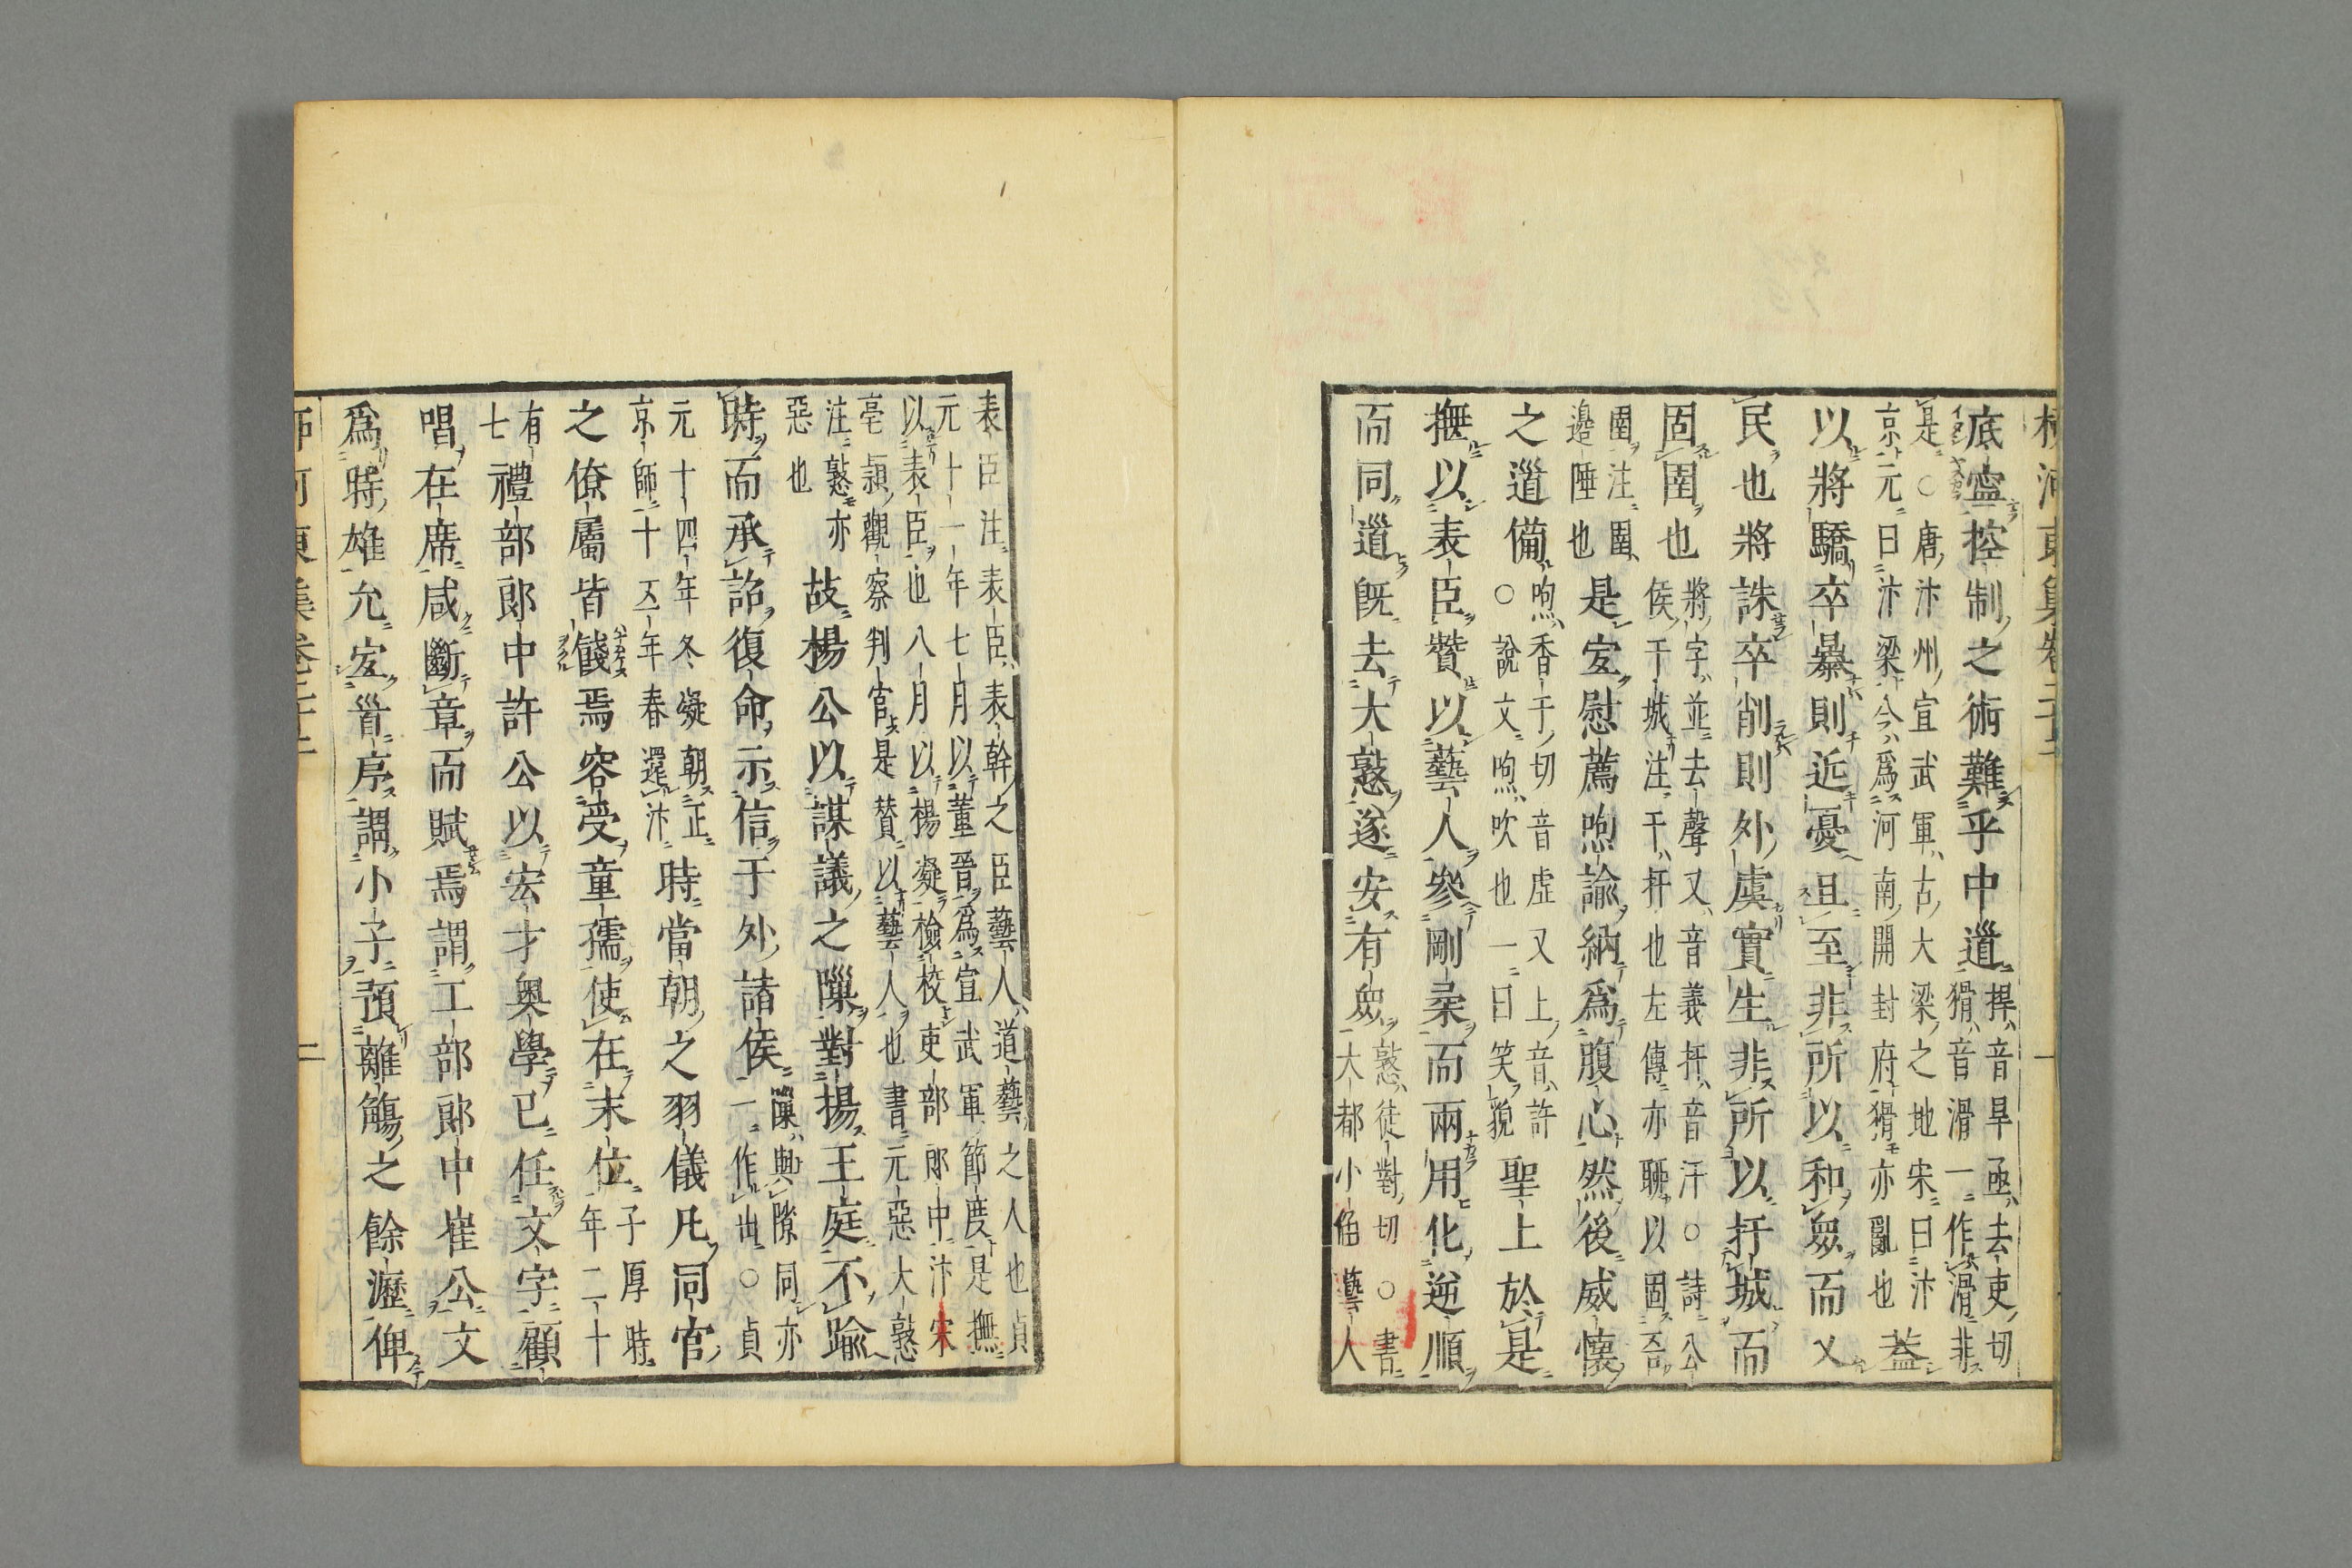 底寍控制之術難乎中道捍音旱亟去吏切
猾音滑一作滑非
是○唐汴州宣武軍古大梁之地宋曰汴
京元曰汴梁今爲河南開封府猾亦亂也蓋
以將驕卒暴則近憂且至非所以和衆而乂
民也將誅卒削則外虞實生非所以扞城而
固圉也將字並去聲又音義扞音汗○詩公
侯干城注干扞也左傳亦聊以固吾
圉注圉
邊陲也是宜慰薦煦諭納爲腹心然後威懷
之道備煦香于切音虛又上音許
○說文煦吹也一曰笑貌聖上於是
撫以表臣贊以藝人參剛柔而兩用化逆順
而同道旣去大憝遂安有衆憝徒對切○書
大都小伯藝人
表臣注表臣表幹之臣藝人道藝之人也貞
元十一年七月以董晉爲宣武軍節度是撫
以表臣也八月以楊凝檢校吏部郎中汴宋
亳潁觀察判官是贊以藝人也書元惡大憝
注憝亦
惡也故楊公以謀議之隟對揚王庭不踰
時而承詔復命示信于外諸侯隟與隙同亦
一作出○貞
元十四年冬凝朝正
京師十五年春還汴時當朝之羽儀凡同官
之僚屬皆餞焉容受童孺使在末位子厚時
年二十
有
七禮部郎中許公以宏才奧學已任文字顧
唱在席咸斷章而賦焉謂工部郎中崔公文
爲時雄允宜首序謂小子預離觴之餘瀝俾